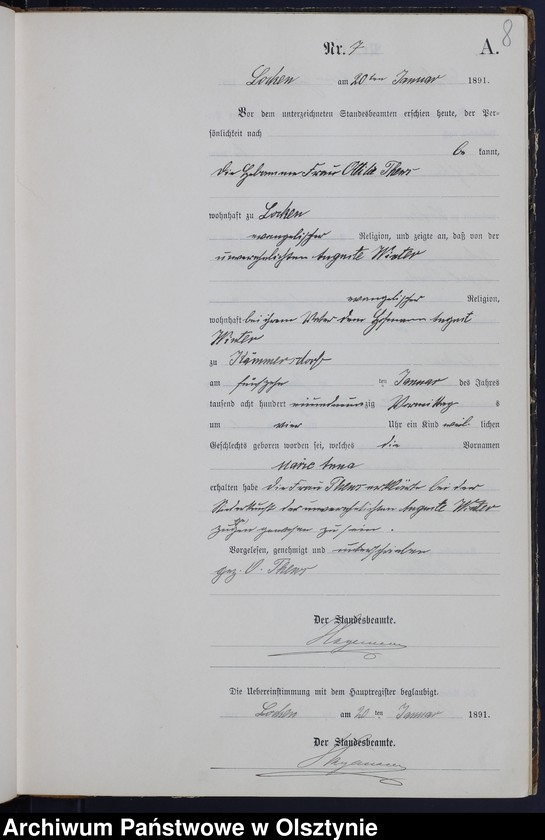 8
Nr. 7 A.
Locken am 20ten Januar 1891.
Vor dem unterzeichneten Standesbeamten erschien heute, der Per-
sönlichkeit nach
be kannt,
die Hebamme Frau Ottilie Thews
wohnhaft zu Locken
evangelischer Religion, und zeigte an, daß von der
unverehelichten Auguste Winter
evangelischer Religion,
wohnhaft bei ihrem Vater dem August
Winter
zu Kämmersdorf
am fünfzehn ten Januar des Jahres
tausend acht hundert einundneunzig Vormittag s
um vier Uhr ein Kind weib lichen
Geschlechts geboren worden sei, welches die Vornamen
Marie Anna
erhalten habe die Frau Thews erklärte bei der
Niederkunft der unverehelichten Auguste Winter
zugegen gewesen zu sein.
Vorgelesen, genehmigt und unterschrieben
gez. O. Thews
Der Standesbeamte.
Hagemann
Die Uebereinstimmung mit dem Hauptregister beglaubigt.
Locken am 20 ten Januar 1891.
Der Standesbeamte.
Hagemann
Archiwum Państwowe w Olsztynie